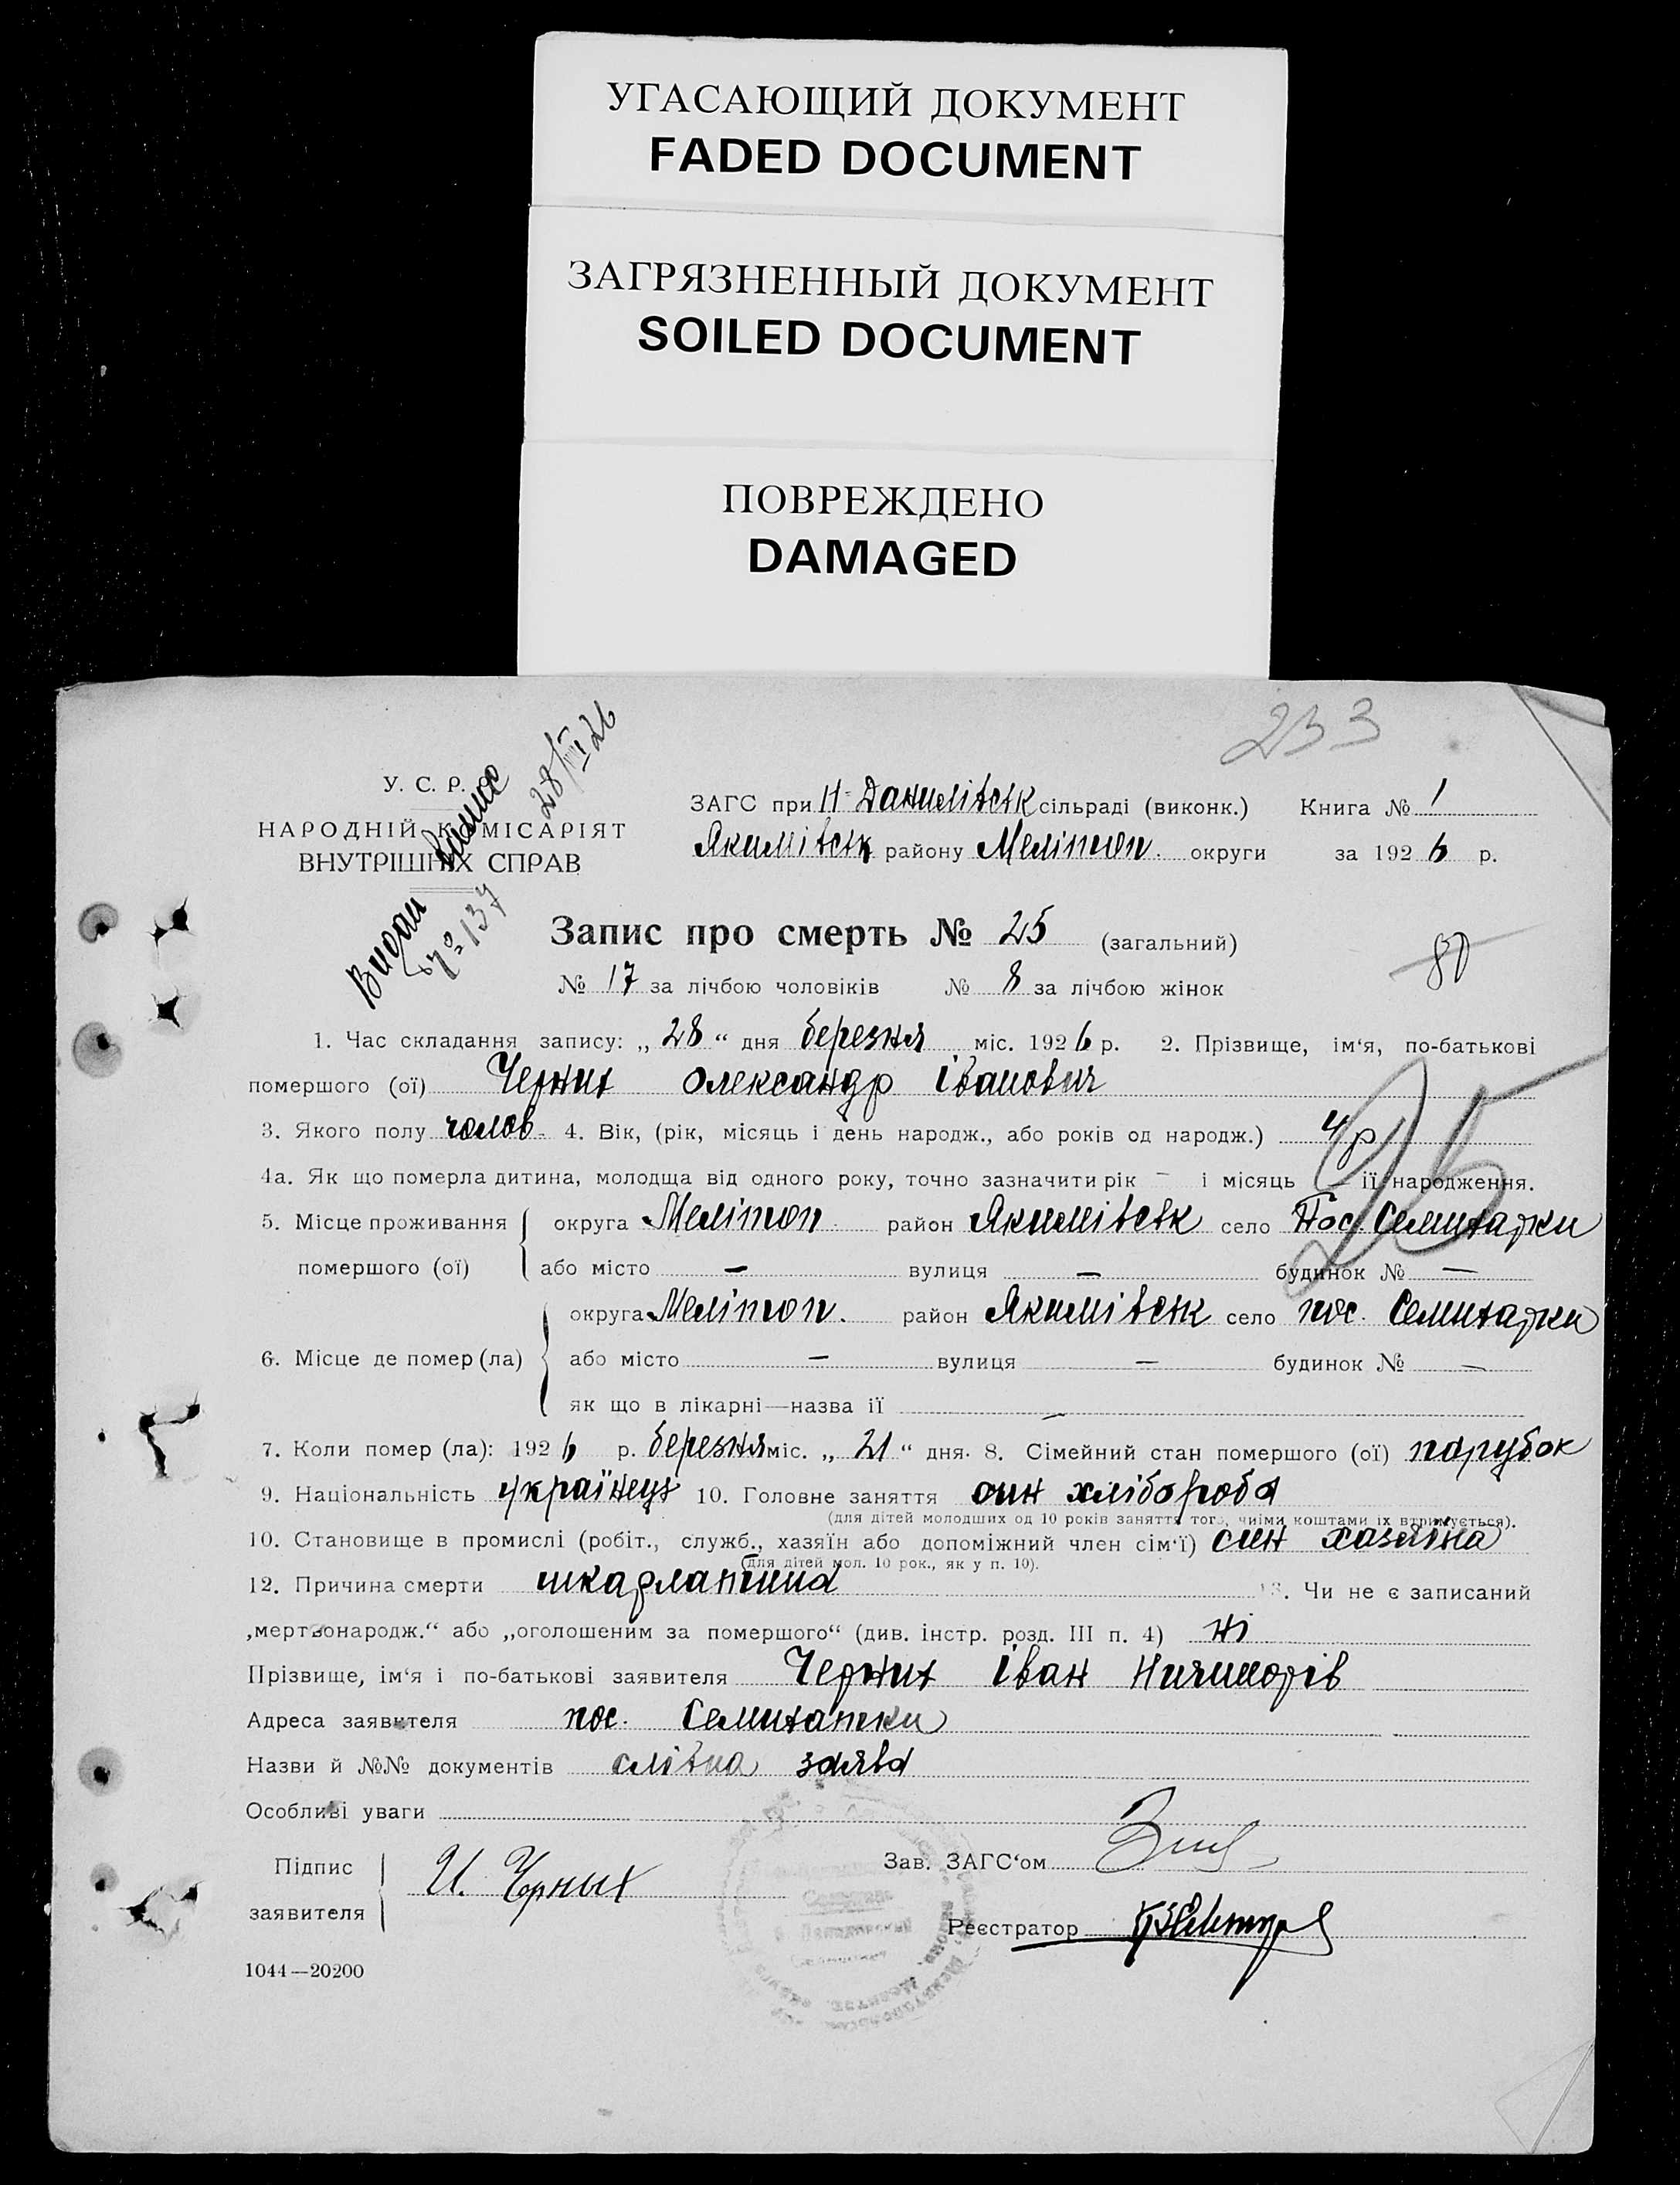 УГАСАЮЩИЙ ДОКУМЕНТ
FADED DOCUMENT
ЗАГРЯЗНЕННЫЙ ДОКУМЕНТ
SOILED DOCUMENT
ПОВРЕЖДЕНО
DAMAGED
233
У. С. Р. Р.
НАРОДНІЙ КОМІСАРІЯТ
ВНУТРІШНІХ СПРАВ
Видан
28/III 26
№ 137
ЗАГС при Н-Данилівськ сільраді (виконк.) Книга № 1
Якимівськ району Мелітоп. округи за 1926 р.
Запис про смерть № 25 (загальний)
80
№ 17 за лічбою чоловіків № 8 за лічбою жінок
1. Час складання запису: „ 28 “ дня березня міс. 1926 р. 2. Прізвище, ім‘я, по-батькові
помершого (ої) Черних Олександр Іванович
3. Якого полу чолов. 4. Вік, (рік, місяць і день народж., або років од народж.) 4 р
25
4а. Як що померла дитина, молодща від одного року, точно зазначити рік — і місяць — її народження.
5. Місце проживання округа Мелітоп. район Якимівськ село Пос. Семихатки
помершого (ої) або місто — вулиця — будинок № —
округа Мелітоп. район Якимівськ село пос. Семихатки
6. Місце де помер (ла) або місто — вулиця — будинок № —
як що в лікарні—назва її —
7. Коли помер (ла): 1926 р. березня міс. „ 21 “ дня. 8. Сімейний стан помершого (ої) парубок
9. Національність українець 10. Головне заняття син хлібороба
(для дітей молодших од 10 років заняття того, чиїми коштами їх втримується).
10. Становище в промислі (робіт., служб., хазяїн або допоміжний член сім‘ї) син хазяїна
(для дітей мол. 10 рок., як у п. 10).
12. Причина смерти шкарлатина 13. Чи не є записаний
„мертвонародж.“ або „оголошеним за помершого“ (див. інстр. розд. III п. 4) ні
Прізвище, ім‘я і по-батькові заявителя Черних Іван Ничипорів
Адреса заявителя пос. Семихатки
Назви й №№ документів слівна заява
Особливі уваги
Підпис
заявителя И. Черных
Зав. ЗАГС‘ом
Реєстратор
1044—20200